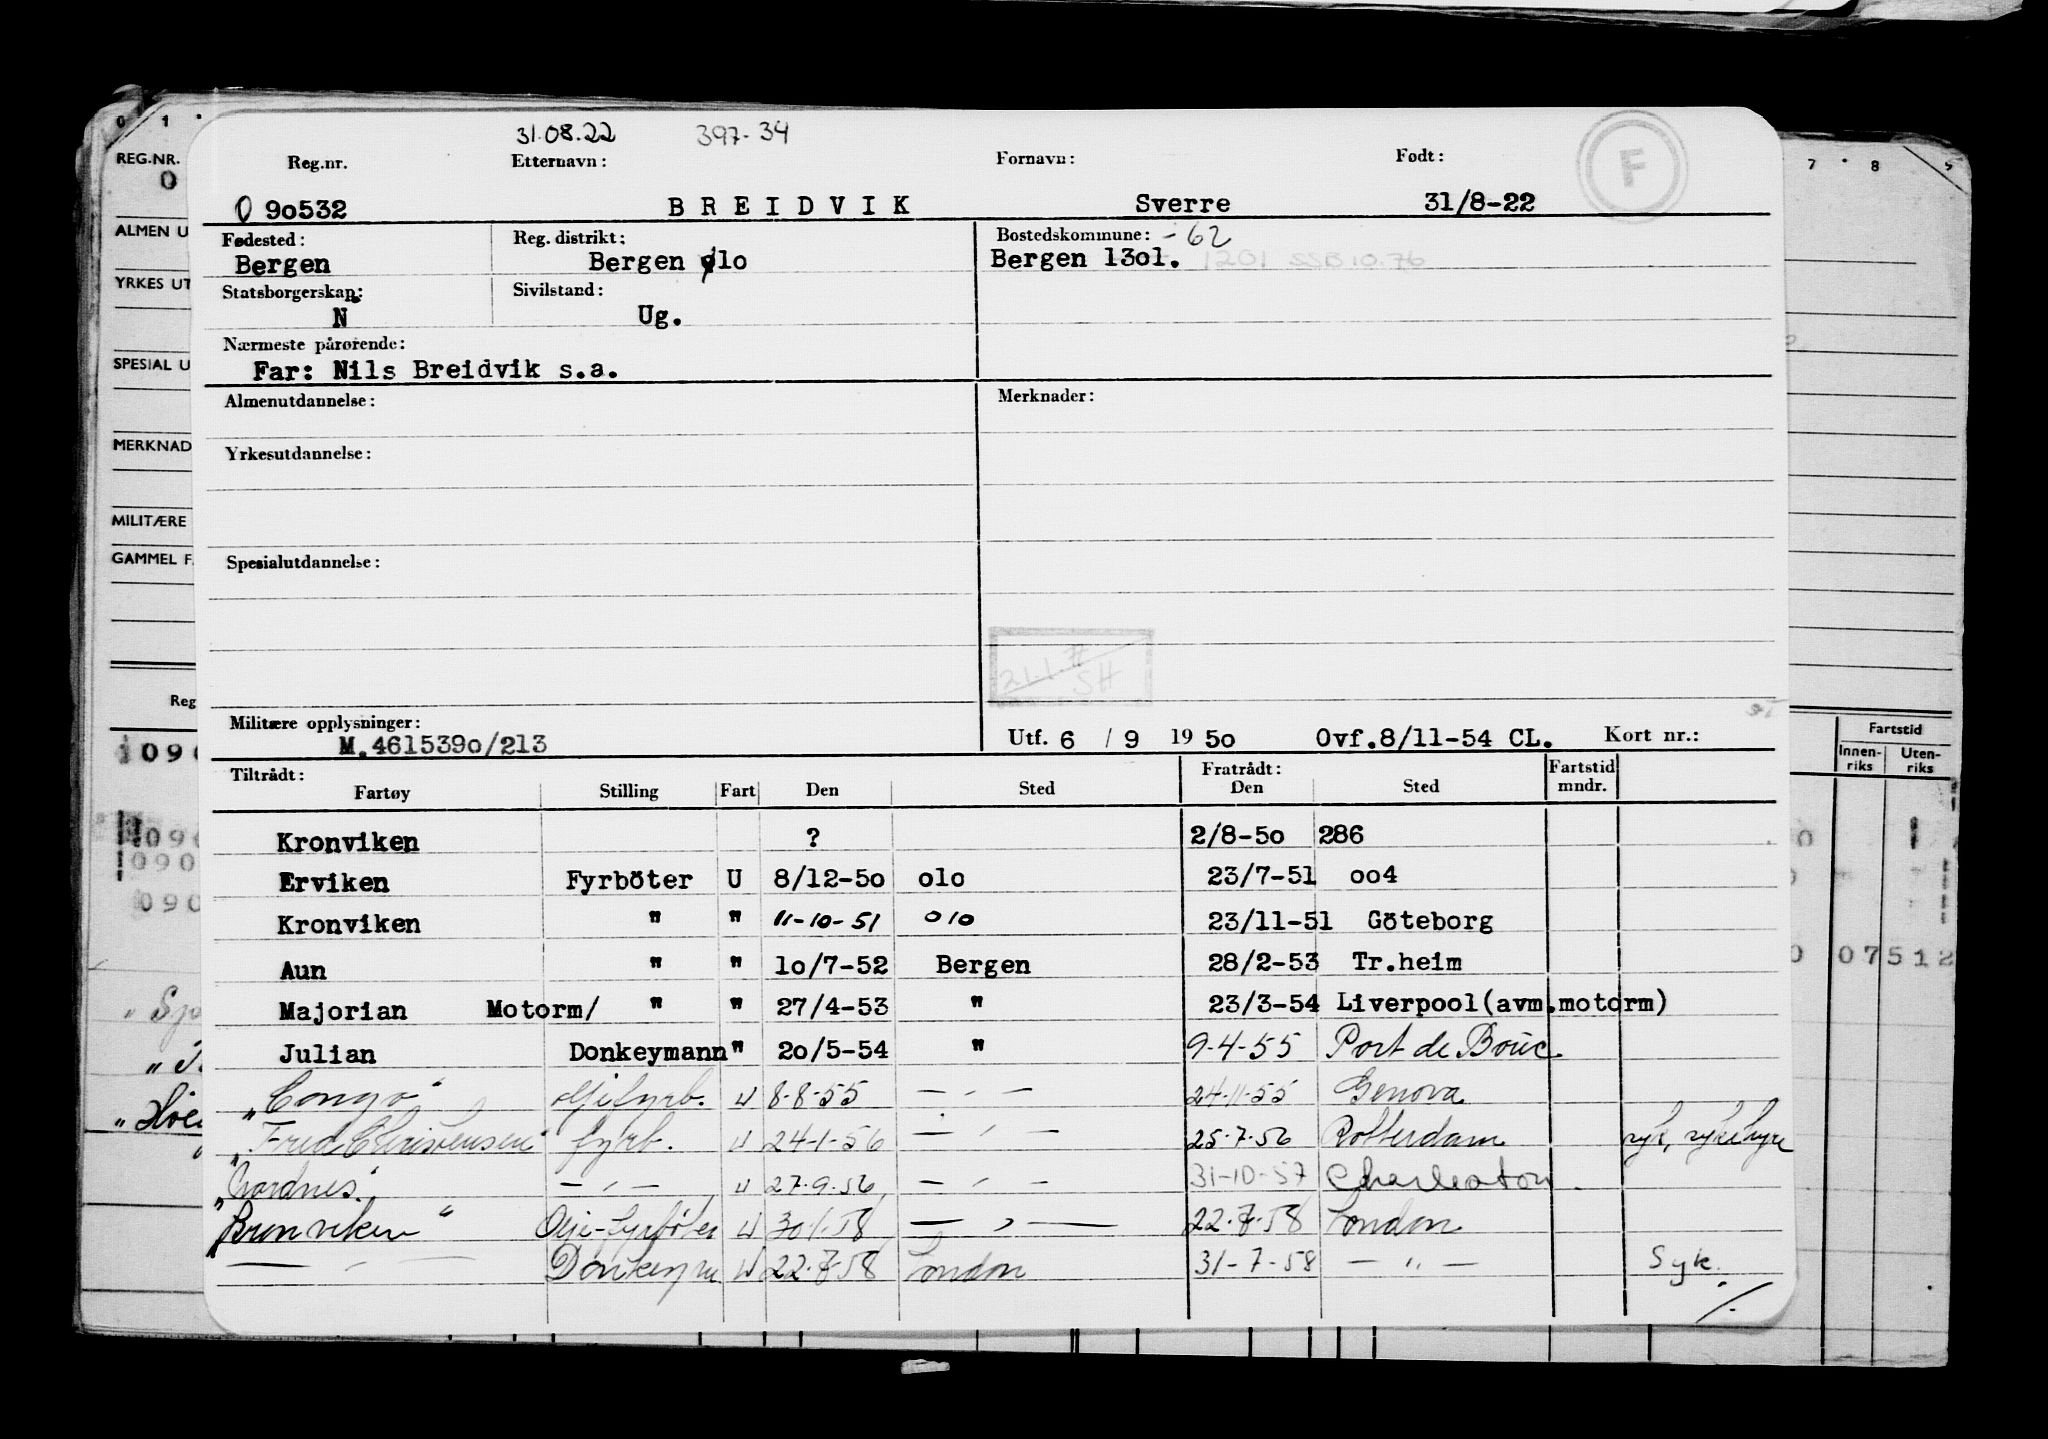 31.08.22 397-34
Reg.nr. Etternavn: Fornavn: Født: F
O 90532 BREIDVIK Sverre 31/8-22
Fødested: Reg. distrikt: Bostedskommune: -62
Bergen Bergen olo Bergen 13ol. 1201 SSB 10.76
Statsborgerskap: Sivilstand:
N Ug.
Nærmeste pårørende:
Far: Nils Breidvik s.a.
Almenutdannelse: Merknader:
Yrkesutdannelse:
Spesialutdannelse:
211 SH
Militære opplysninger:
M.461539o/213 Utf. 6 / 9 19 5o Ovf.8/11-54 CL. Kort nr.:
Tiltrådt: Fratrådt: Fartstid
Fartøy Stilling Fart Den Sted Den Sted mndr.
Kronviken ? 2/8-5o 286
Erviken Fyrböter U 8/12-5o olo 23/7-51 oo4
Kronviken " " 11-10-51 010 23/11-51 Göteborg
Aun " " lo/7-52 Bergen 28/2-53 Tr.heim
Majorian Motorm/ " " 27/4-53 " 23/3-54 Liverpool(avm.motorm)
Julian Donkeymann " 2o/5-54 " 9-4-55 Port de Bouc
"Congo" oljefyrb. U 8-8-55 — " — 24-11-55 Genova
"Fred Christensen" fyrb. U 24-1-56 — " — 25-7-56 Rotterdam syk, sykehyre
— " — U 27-9-56 — " — 31-10-57 Charleston
Brunviken" Olje-fyrbøter U 30/1-58 — " — 22-7-58 London
— " — U 22-7-58 London 31-7-58 — " — Syk.
./.
0 1
REG.NR.
0
ALMEN U
YRKES UT
SPESIAL U
MERKNAD
MILITÆRE
GAMMEL F
Reg
090
090
090
090
7 8
Fartstid
Innen-riks Uten-riks
0 07512